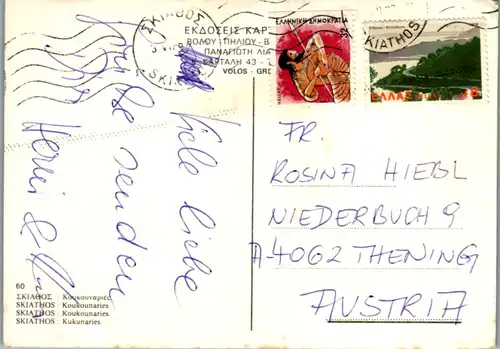 ΣΚΙΑΘΟΣ
ΕΚΔΟΣΕΙΣ ΚΑΡ
ΒΟΛΟΥ-ΠΗΛΙΟΥ-Β
ΠΑΝΑΓΙΩΤΗ ΛΙΑ
ΚΑΡΤΑΛΗ 43 -
VOLOS - GRE
SKI
ΕΛΛΗΝΙΚΗ ΔΗΜΟΚΡΑΤΙΑ
KIATHOS
ΕΛΛΑΣ
Viele liebe
Grüße senden
Dir Herwi &
FR.
ROSINA HIEBL
NIEDERBUCH 9
A-4062 THENING
AUSTRIA
60
ΣΚΙΑΘΟΣ : Κουκουναριές
SKIATHOS : Koukounaries
SKIATHOS : Koukounaries
SKIATHOS : Kukunaries